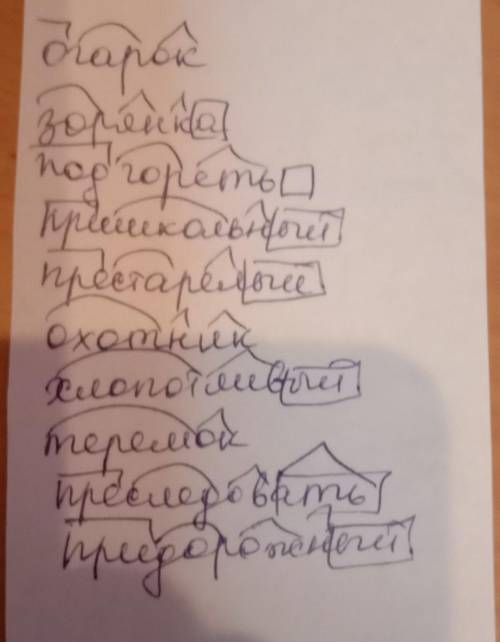 огарок
зорянка
подгореть
пришкольный
престарелый
охотник
хлопотливый
теремок
преследовать
придорожный